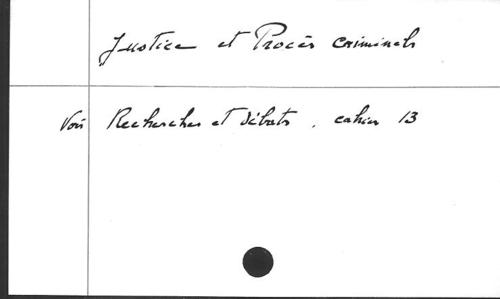 Justice et Procès criminels
Voir Recherches et Débats, cahier 13